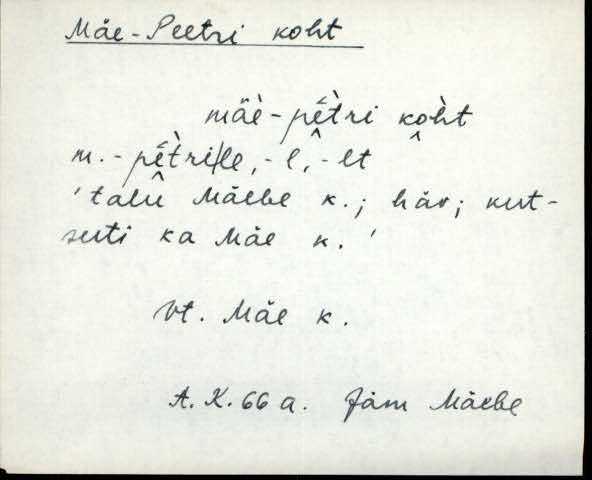 Mäe-Peetri koht
mäè-pētri koht
m.-pētri/le, -l, -lt
'talu Mäebe k.; häv; kut-
suti ka Mäe k.'
vt. Mäe k.
A. K. 66 a. Jäm Mäebe